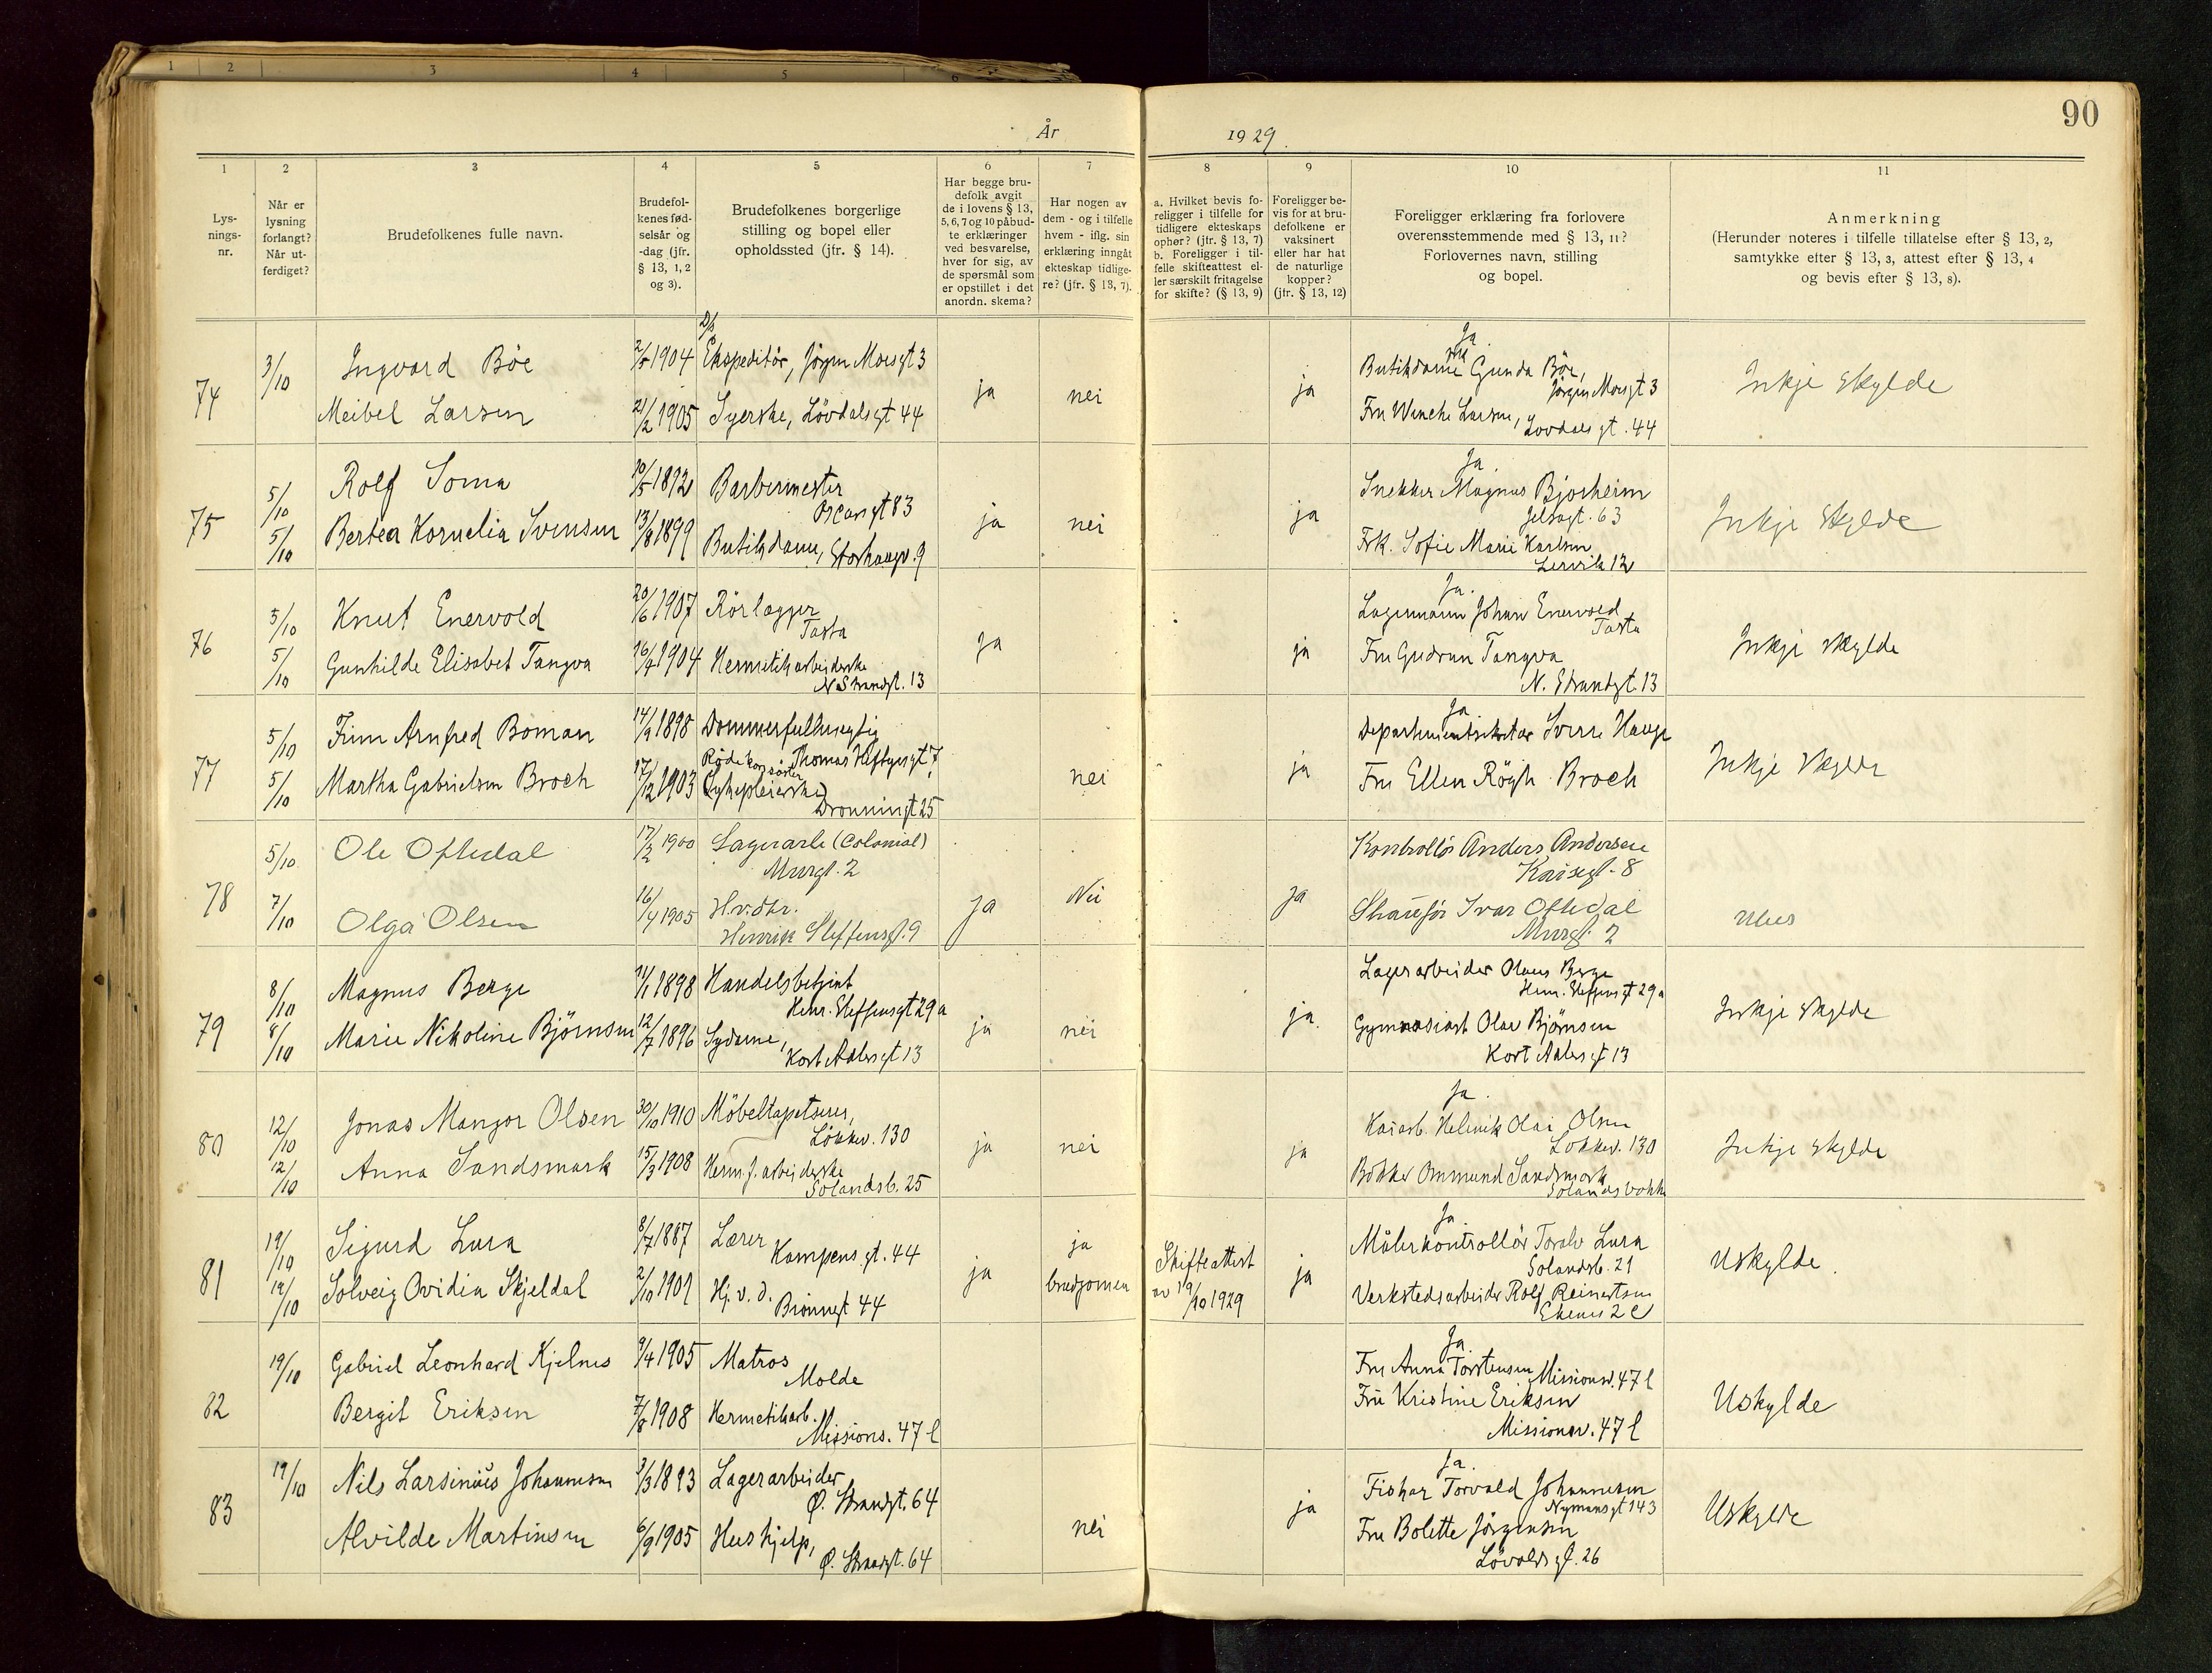 1 2 3 4 5 6
År 1929.
90
1 2 3 4 5 6 7 8 9 10 11
Lys-
nings-
nr.
Når er
lysning
forlangt?
Når ut-
ferdiget?
Brudefolkenes fulle navn.
Brudefol-
kenes fød-
selsår og
-dag (jfr.
§ 13, 1, 2
og 3).
Brudefolkenes borgerlige
stilling og bopel eller
opholdssted (jfr. § 14).
Har begge bru-
defolk avgit
de i lovens § 13,
5, 6, 7 og 10 påbud-
te erklæringer
ved besvarelse,
hver for sig, av
de spørsmål som
er opstillet i det
anordn. skema?
Har nogen av
dem - og i tilfelle
hvem - iflg. sin
erklæring inngått
ekteskap tidlige-
re? (jfr. § 13, 7).
a. Hvilket bevis fo-
religger i tilfelle for
tidligere ekteskaps
ophør? (jfr. § 13, 7)
b. Foreligger i til-
felle skifteattest el-
ler særskilt fritagelse
for skifte? (§ 13, 9)
Foreligger be-
vis for at bru-
defolkene er
vaksinert
eller har hat
de naturlige
kopper?
(jfr. § 13, 12)
Foreligger erklæring fra forlovere
overensstemmende med § 13, 11?
Forlovernes navn, stilling
og bopel.
Anmerkning
(Herunder noteres i tilfelle tillatelse efter § 13, 2,
samtykke efter § 13, 3, attest efter § 13, 4
og bevis efter § 13, 8).
74
3/10 Ingvard Böe 2/5 1904 Ekspeditör, Jörgen Moesgt 3
Meibel Larsen 21/2 1905 Syerske, Lövdalsgt 44
ja nei ja
Ja.
Butikdame Gunda Böe,
Jörgen Moesgt 3
Fru Wenche Larsen,
Lovdalsgt. 44
Inkje skylde
75
5/10 Rolf Soma 20/5 1892 Barbermester
Oscarsgt 83
5/10 Bertea Kornelia Svensen 13/8 1899 Butikdame, Storhaugv. 9
ja nei ja
Ja.
Snekker Magnus Bjorheim
Jelsagt. 63
Frk. Sofie Marie Karlsen
Lervik 12
Inkje skylde
76
5/10 Knut Enervold 20/6 1907 Rörlegger
Tasta
5/10 Gunhilde Elisabet Tangva 26/9 1904 Hermetikarbeiderske
N. Strandgt. 13
ja ja
Ja.
Lagermann Johan Enervold
Tasta
Fru Gudrun Tangva
N. Strandgt. 13
Inkje skylde
77
5/10 Finn Arnfred Boman 14/9 1898 Dommerfullmegtig
Thomas Heftyesgt 7
5/10 Martha Gabrielsen Broch 17/12 1903 Röde korssöster
(Sykepleierske)
Dronningt 25
nei ja
Ja
Departementsekretær Sverre Hauge
Fru Ellen Rögh Broch
Inkje skylde
78
5/10 Ole Oftedal 17/2 1900 Lagerarb (Colonial)
Murgt. 2
7/10 Olga Olsen 16/4 1905 H.v.dtr.
Henrik Steffensgt. 9
ja Nei ja
Kontrollör Anders Andersen
Kaisegt. 8
Shauför Ivar Oftedal
Murgt. 2
79
8/10 Magnus Berge 21/1 1898 Handelsbetjent
Henr. Steffensgt 29 a
8/10 Marie Nikoline Björnsen 12/7 1896 Sydame,
Kort Adlersgt 13
ja nei ja.
Lagerarbeider Olaus Berge
Henr. Steffensgt 29 a
Gymnasiast Olav Björnsen
Kort Adlersgt 13
Inkje skylde
80
12/10 Jonas Mangor Olsen 30/10 1910 Möbeltapetserer,
Lökkev. 130
12/10 Anna Sandsmark 15/3 1908 Herm.f. arbeiderske
Solandsb. 25
ja nei ja
Ja.
Kaiarb. Helmik Olai Olsen
Lökkev. 130
Bökker Ommund Sandsmark
Solandsbakk
Inkje skylde
81
19/10 Sigurd Lura 8/7 1887 Lærer
Kampensgt. 44
19/10 Solveig Ovidia Skjeldal 2/10 1901 Hj. v. d.
Brönnegt 44
ja
ja
brudgomen
Skifteattest
av 19/10 1929
ja
Ja
Målerkontrollör Torolv Lura
Solandsb. 21
Verkstedsarbeider Rolf Reinertsen
Uskylde.
82
19/10 Gabriel Leonhard Kjelnes 9/4 1905 Matros
Molde
Bergit Eriksen 7/8 1908 Hermetikarb.
Missions. 47 l
Ja.
Fru Anna Torstensen Missionsv. 47 l
Fru Kristine Eriksen
Missionsv. 47 l
Uskylde
83
19/10 Nils Larsinius Johannesen 3/3 1893 Lagerarbeider
Ø. Strandgt. 64
Alvilde Martinsen 6/9 1905 Hushjelp,
Ø. Strandgt. 64
nei ja
Ja.
Fisker Torvald Johannesen
Nymansgt 143
Fru Bolette Jörgensen
Lövdalsgt. 26
Uskylde